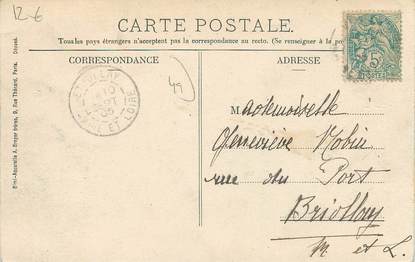 12 €
CARTE POSTALE.
Tous les pays étrangers n'acceptent pas la correspondance au recto. (Se renseigner à la
CORRESPONDANCE
ADRESSE
49
5
POSTES
ET LOIRE
Mademoiselle
Geneviève Robin
rue du Port
Briollay
M et L.